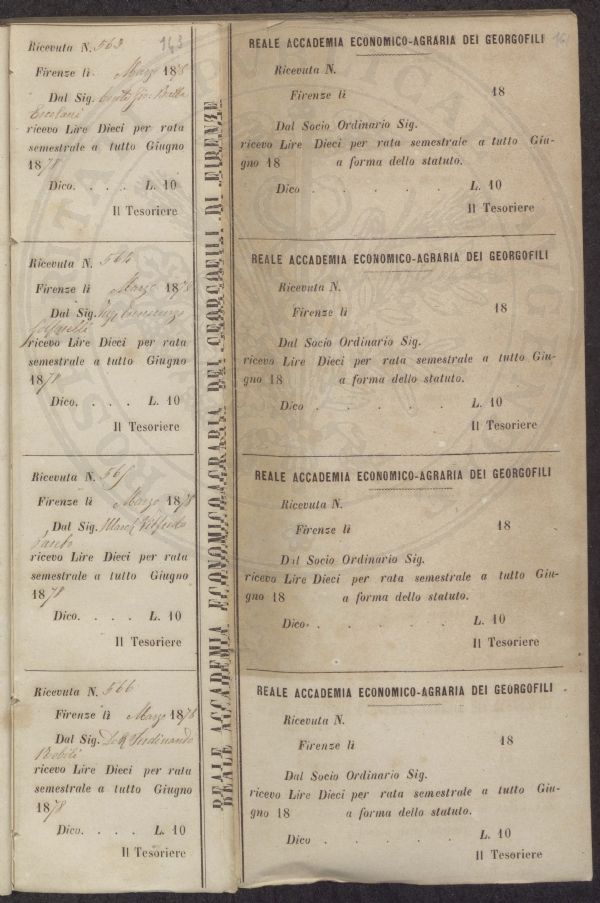 143
Ricevuta N. 563
Firenze lì Marzo 1878
Dal Sig.
Ercolani
ricevo Lire Dieci per rata
semestrale a tutto Giugno
1878
Dico. . . . L. 10
Il Tesoriere
Ricevuta N. 564
Firenze lì Marzo 1878
Dal Sig.
ricevo Lire Dieci per rata
semestrale a tutto Giugno
1878
Dico. . . . L. 10
Il Tesoriere
Ricevuta N. 565
Firenze lì Marzo 1878
Dal Sig. March. Vilfredo
Pareto
ricevo Lire Dieci per rata
semestrale a tutto Giugno
1878
Dico. . . . L. 10
Il Tesoriere
Ricevuta N. 566
Firenze lì Marzo 1878
Dal Sig. Dott. Ferdinando
ricevo Lire Dieci per rata
semestrale a tutto Giugno
1878
Dico. . . . L. 10
Il Tesoriere
REALE ACCADEMIA ECONOMICO-AGRARIA DEI GEORGOFILI DI FIRENZE
REALE ACCADEMIA ECONOMICO-AGRARIA DEI GEORGOFILI
Ricevuta N.
Firenze lì 18
Dal Socio Ordinario Sig.
ricevo Lire Dieci per rata semestrale a tutto Giu-
gno 18 a forma dello statuto.
Dico . . . . . L. 10
Il Tesoriere
REALE ACCADEMIA ECONOMICO-AGRARIA DEI GEORGOFILI
Ricevuta N.
Firenze lì 18
Dal Socio Ordinario Sig.
ricevo Lire Dieci per rata semestrale a tutto Giu-
gno 18 a forma dello statuto.
Dico . . . . . L. 10
Il Tesoriere
REALE ACCADEMIA ECONOMICO-AGRARIA DEI GEORGOFILI
Ricevuta N.
Firenze lì 18
Dal Socio Ordinario Sig.
ricevo Lire Dieci per rata semestrale a tutto Giu-
gno 18 a forma dello statuto.
Dico . . . . . L. 10
Il Tesoriere
REALE ACCADEMIA ECONOMICO-AGRARIA DEI GEORGOFILI
Ricevuta N.
Firenze lì 18
Dal Socio Ordinario Sig.
ricevo Lire Dieci per rata semestrale a tutto Giu-
gno 18 a forma dello statuto.
Dico . . . . . L. 10
Il Tesoriere